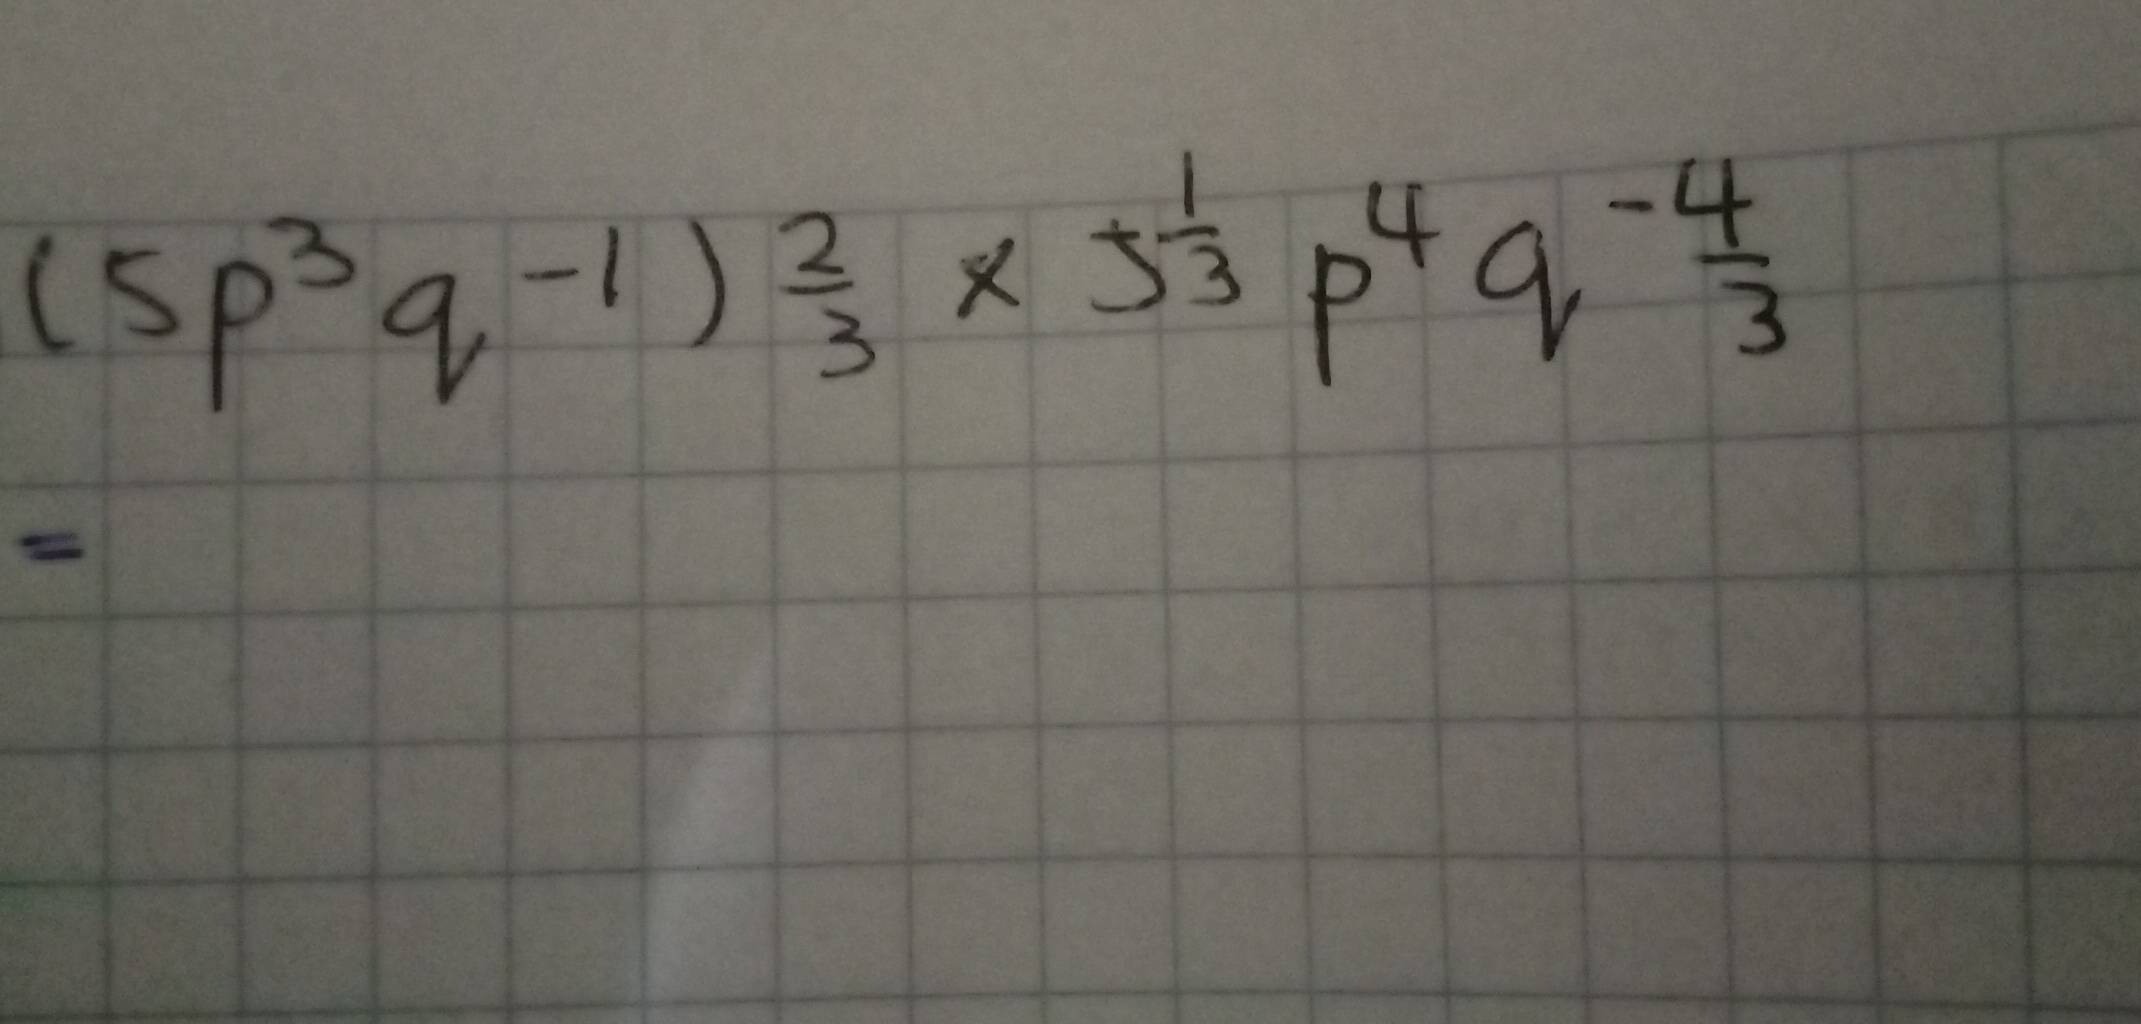 (5p³q⁻¹)^{2/3} × 5^{1/3} p⁴ q^{-4/3}
=